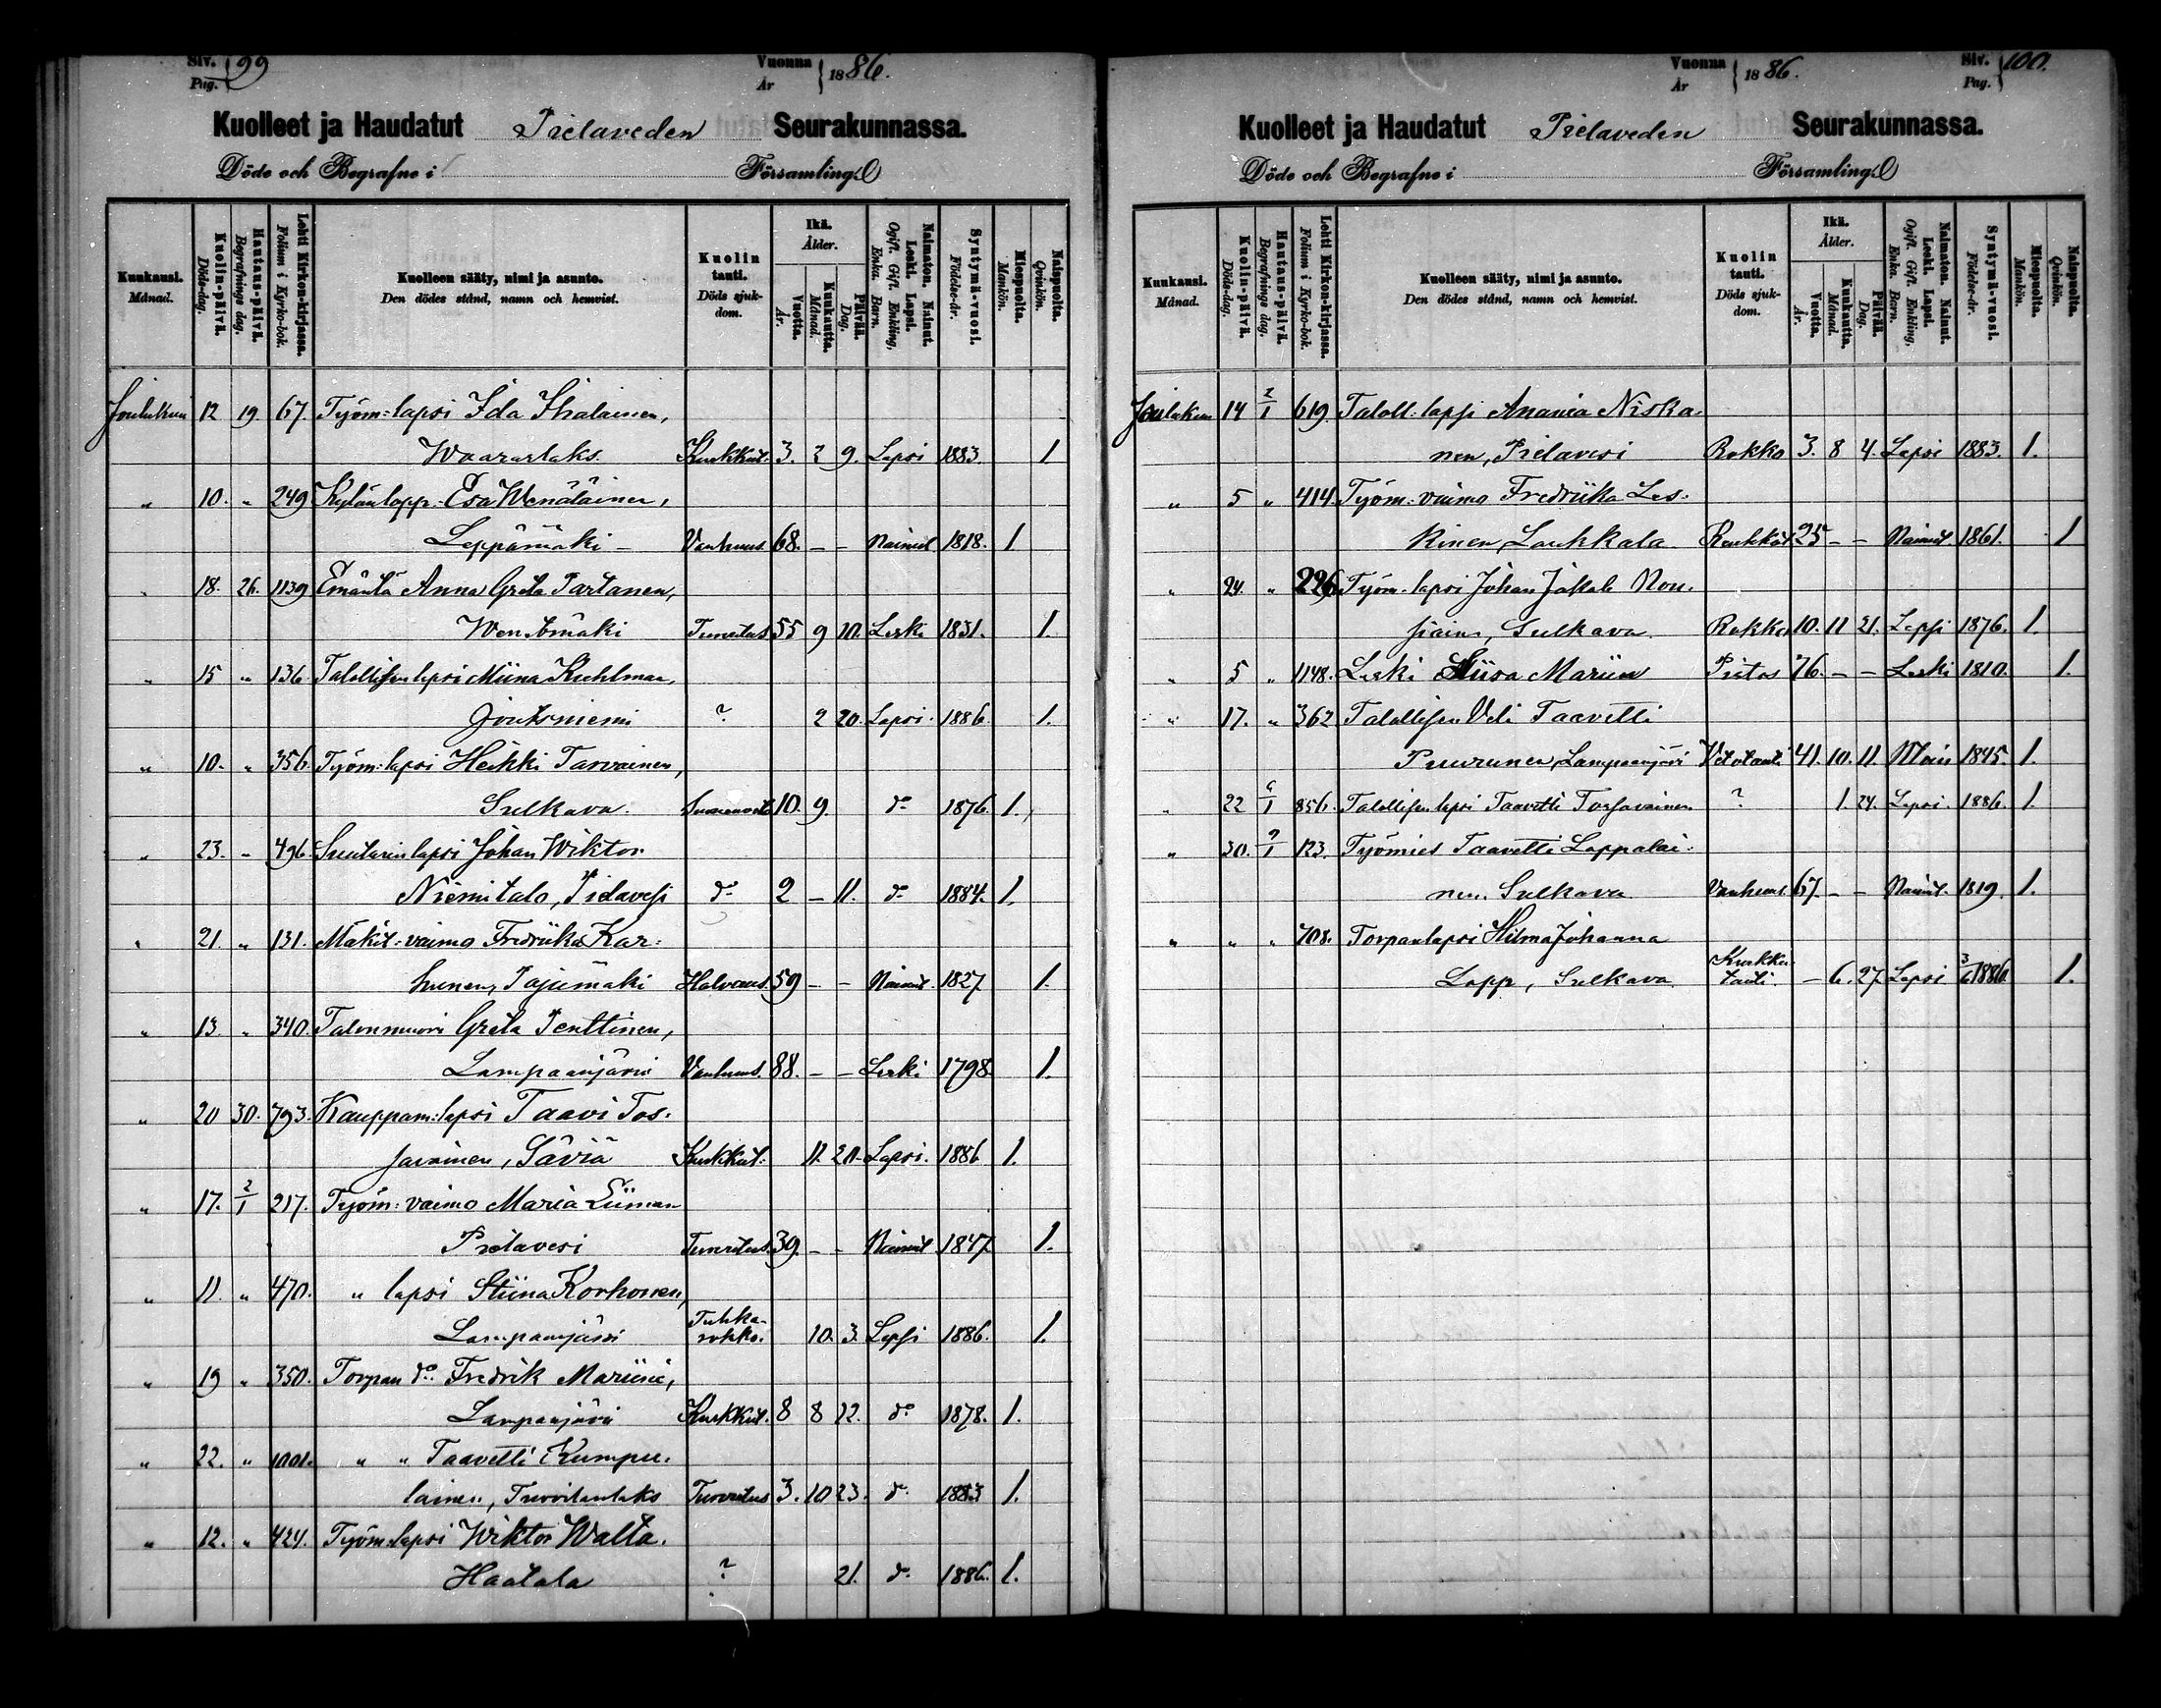 Siv. Pag. 99
Vuonna År 1886.
Kuolleet ja Haudatut Pielaveden Seurakunnassa.
Döde och Begrafne i Församling
Kuukausi. Månad.
Kuolin-päivä. Döds-dag.
Hautaus-päivä. Begrafnings dag.
Lehti Kirkon-kirjassa. Folium i Kyrko-bok.
Kuolleen sääty, nimi ja asunto. Den dödes stånd, namn och hemvist.
Kuolin tauti. Döds sjukdom.
Ikä. Ålder.
Vuotta. År.
Kuukautta. Månad.
Päivää. Dag.
Naimaton. Nainut. Leski. Lapsi. Ogift. Gift. Enkling, Enka. Barn.
Syntymä-vuosi. Födelse-år.
Miespuolta. Mankön.
Naispuolta. Qvinkön.
Joulukuu 12 19. 67. Työm: lapsi Ida Ihalainen,
Waaraslaks. Kurkkut. 3. 2 9. Lapsi 1883. 1.
" 10. " 249 Kylänlapp. Esa Wenäläinen,
Leppämäki - Vanhuus. 68. - - Nainut 1818. 1
" 18. 26. 1139 Emäntä Anna Greta Partanen,
Wenetmäki Tuneitus 55 9 10. Leski 1831. 1.
" 15 " 136. Talollisen lapsi Miina Kuhlman,
Joutsniemi ? 2 20. Lapsi. 1886. 1.
" 10. " 356. Työm: lapsi Heikki Tarvainen,
Sulkava. 10. 9. d:o 1876. 1.
" 23. " 496. Suutarin lapsi Johan Wiktor
Niemitalo, Pielavesi d:o 2 - 11. d:o 1884. 1.
" 21. " 131. Mäkit: vaimo Fredriika Kar:
hunen, Pajumäki Halvaus. 59 - - Nainut. 1827. 1.
" 13. " 340. Talonmuori Greta Penttinen,
Lampaanjärvi Vanhuus. 88. - - Leski 1798. 1.
" 20 30. 793. Kauppam: lapsi Taavi Tos:
savainen, Säviä Kurkkut: 11. 21. Lapsi. 1886 1.
" 17. 2/1 217. Työm: vaimo Maria Liiman
Pielavesi 39. - - Nainut 1847. 1.
" 11. " 470. " lapsi Stiina Korhonen,
Lampaanjärvi Tuhka-rokko. 10. 3. Lapsi 1886. 1.
" 19 " 350. Torpan d:o Fredrik Mariini,
Lampaanjärvi Kurkkut. 8 8 12. d:o 1878. 1.
" 22. " 1001. " " Taavetti Kumpu:
lainen, 3. 10 23. d:o 1883 1.
" 12. " 424. Työm: lapsi Wiktor Walta.
Haatala ? 21. d:o 1886. 1.
Siv. Pag. 100.
Vuonna År 1886.
Kuolleet ja Haudatut Pielaveden Seurakunnassa.
Döde och Begrafne i Församling
Kuukausi. Månad.
Kuolin-päivä. Döds-dag.
Hautaus-päivä. Begrafnings dag.
Lehti Kirkon-kirjassa. Folium i Kyrko-bok.
Kuolleen sääty, nimi ja asunto. Den dödes stånd, namn och hemvist.
Kuolin tauti. Döds sjukdom.
Ikä. Ålder.
Vuotta. År.
Kuukautta. Månad.
Päivää. Dag.
Naimaton. Nainut. Leski. Lapsi. Ogift. Gift. Enkling, Enka. Barn.
Syntymä-vuosi. Födelse-år.
Miespuolta. Mankön.
Naispuolta. Qvinkön.
Joulukuu 14 2/1 619. Taloll. lapsi Anania Niska
nen, Pielavesi Rokko 3. 8 4. Lapsi 1883. 1.
" 5 " 414. Työm: vaimo Fredriika Les:
kinen, Laukkala 25 - - Nainut. 1861. 1
" 24. " 226. Työm. lapsi Johan Jakob Rou:
siain, Sulkava Rokko 10. 11 21. Lapsi 1876. 1.
" 5 " 1148. Leski Liisa Mariin Pistos 76. - - Leski 1810. 1.
" 17. " 362 Talollisen Veli Taavetti
Puurunen, Lampaanjärvi Vetotauti 41. 10. 11. Nain 1845. 1.
" 22 6/1 856. Talollisen lapsi Taavetti Tossavainen ? 1. 24. Lapsi. 1886. 1.
" 30. 9/1 123. Työmies Taavetti Lappalai:
nen. Sulkava Vanhuus. 67. - - Nainut. 1819. 1.
" " " 708. Torpanlapsi Hilma Johanna
Lapp, Sulkava. Kurkku-tauti. - 6. 27. Lapsi 3/6 1886. 1.